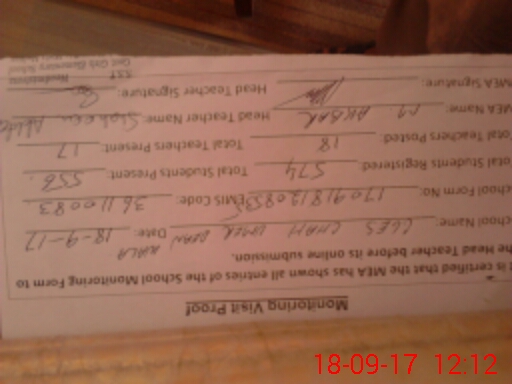 Monitoring Visit Proof
It is certified that the MEA has shown all entries of the School Monitoring Form to
the Head Teacher before its online submission.
School Name: CCES CHAH UMER DEAN WALA Date: 18-9-17
School Form No: EMIS Code: 36110083
Total Students Registered: 574 Total Students Present: 556
Total Teachers Posted: 18 Total Teachers Present: 17
MEA Name: M AKBAR Head Teacher Name:
MEA Signature: Head Teacher Signature:
SST
Headmistress
18-09-17 12:12